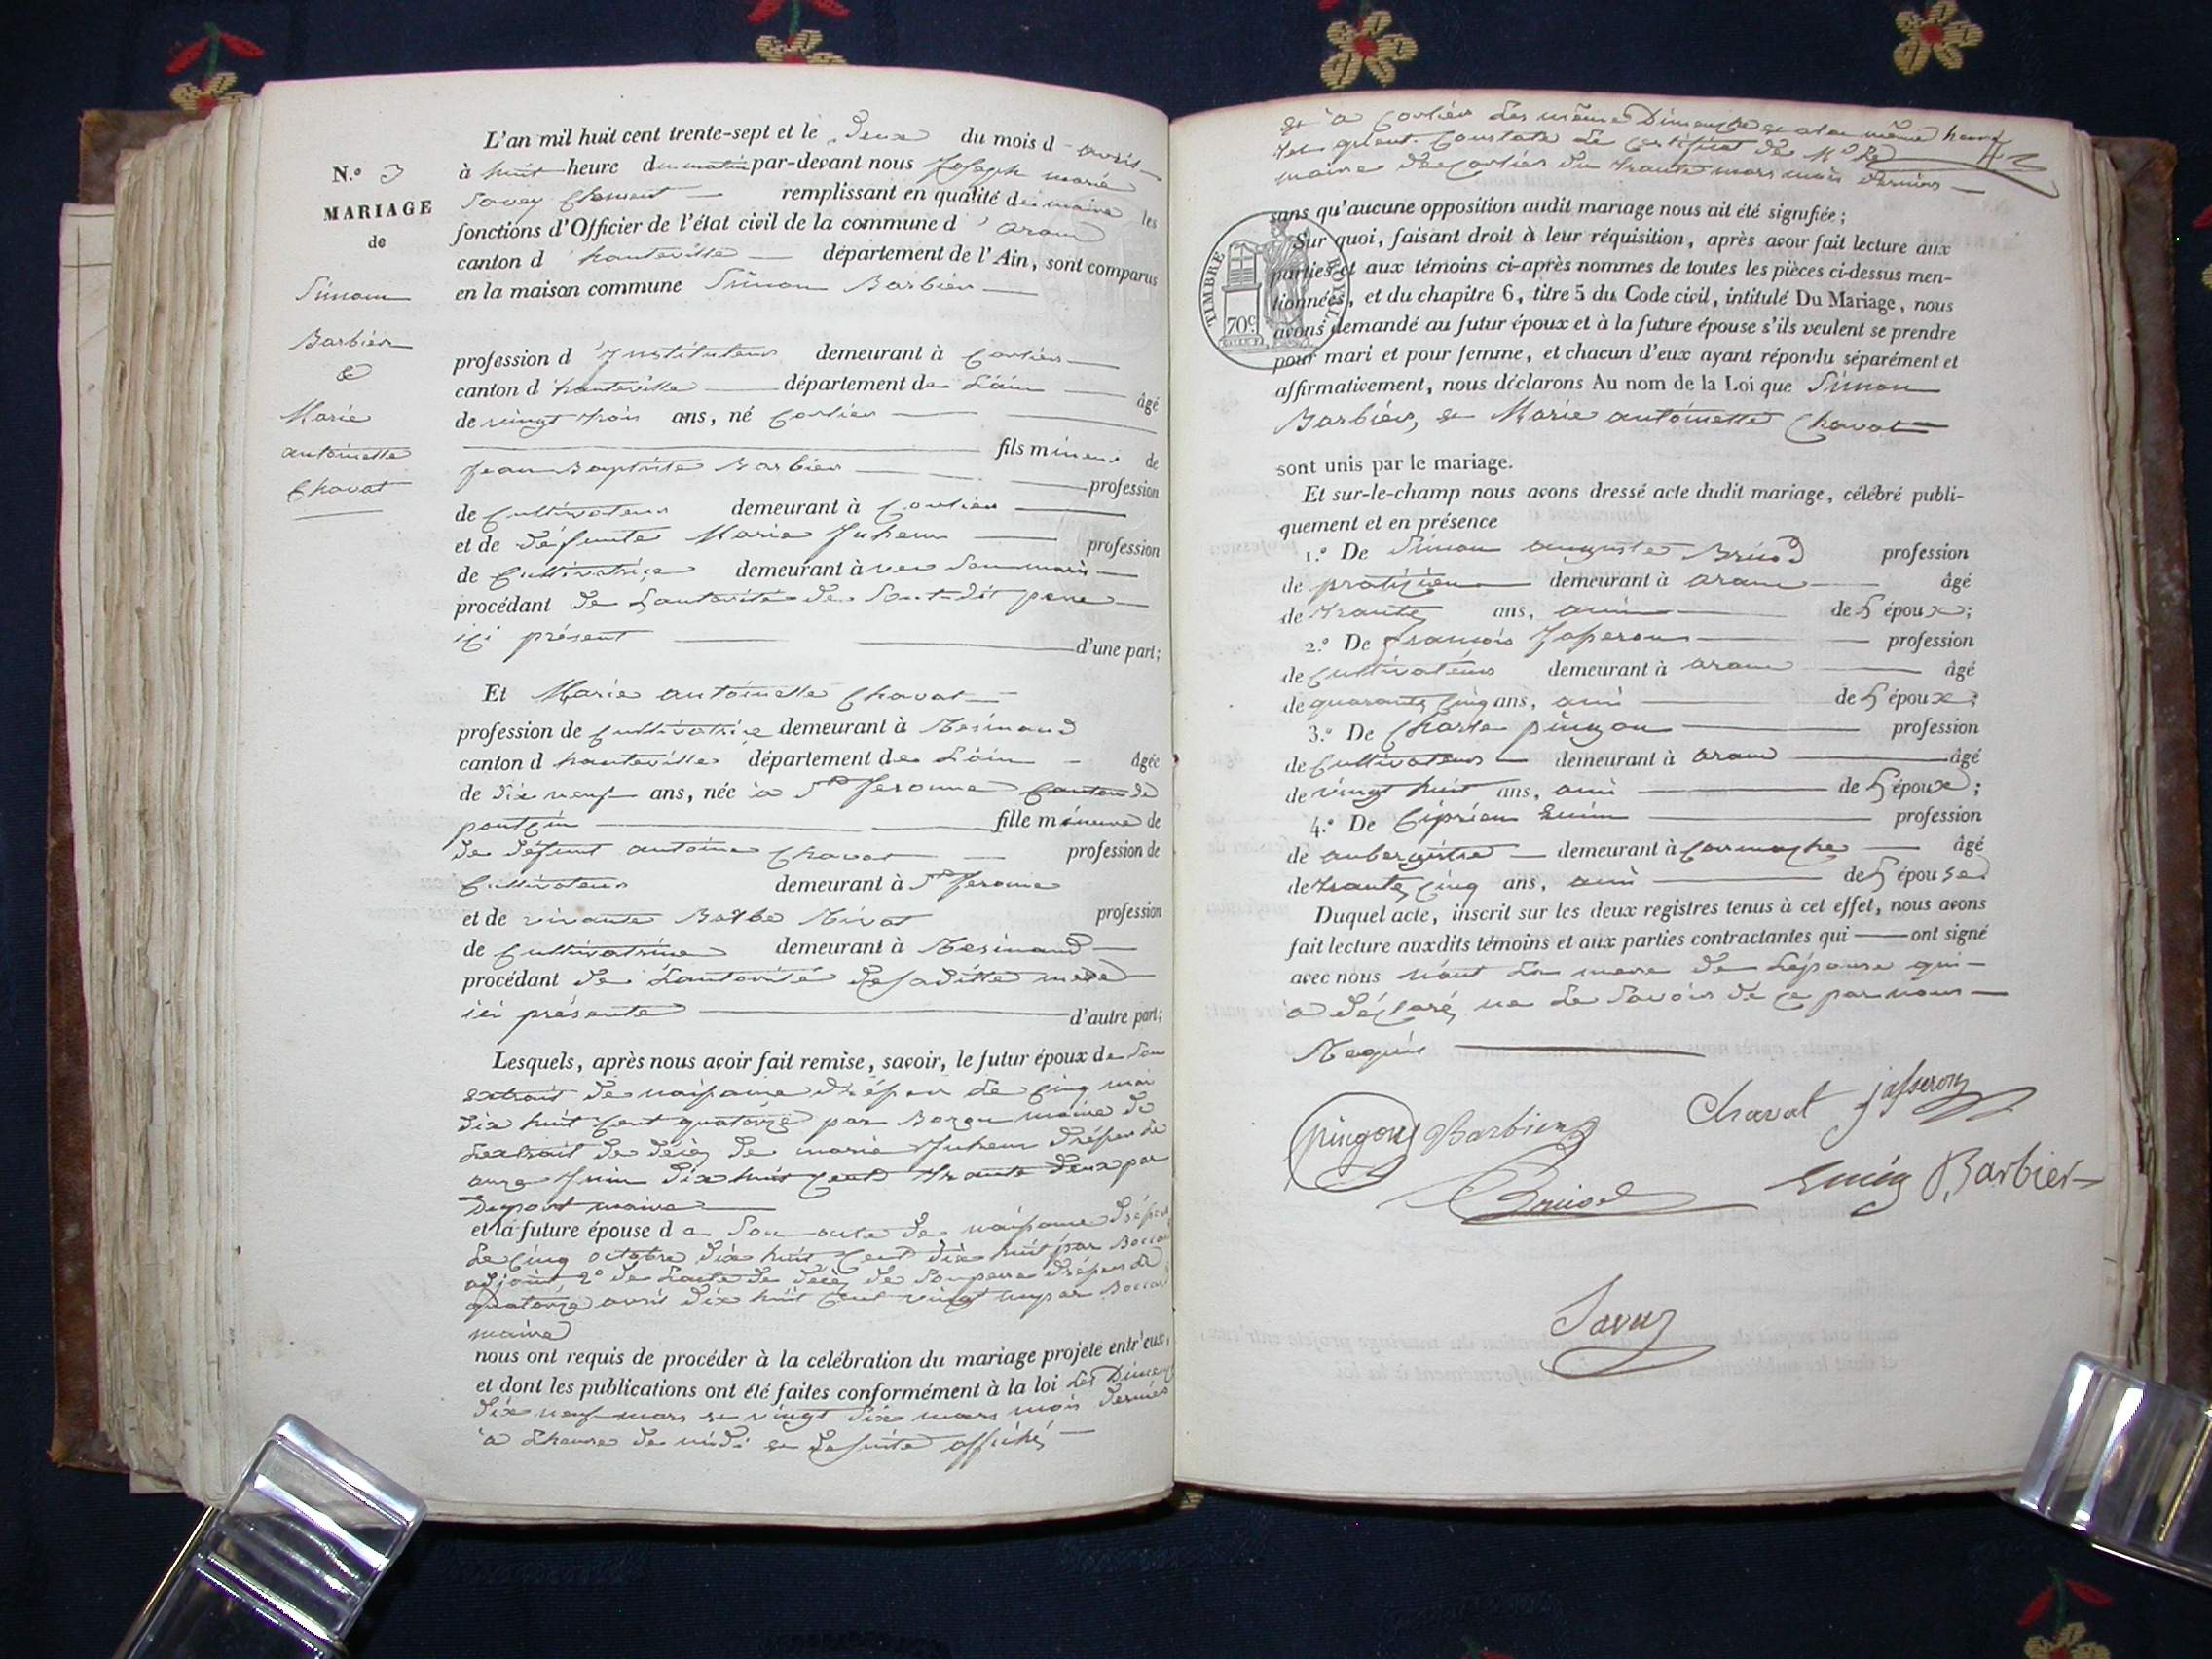 L'an mil huit cent trente-sept et le deux du mois d'avril
N.º 3
à huit heure du matin par-devant nous Joseph marie
MARIAGE
Savey Clement remplissant en qualité de maire les
de
fonctions d'Officier de l'état civil de la commune d'aranc
canton d'hauteville département de l'Ain, sont comparus
Simon
en la maison commune Simon Barbier
Barbier
&
profession d'Instituteur demeurant à Corlier
canton d'hauteville département de L'ain âgé
Marie
de vingt trois ans, né Corlier
antoinette
fils mineur de
Chavat
Jean Baptiste Barbier profession
de Cultivateur demeurant à Corlier
et de défunte Marie Juhem profession
de Cultivatrice demeurant à
procédant de Lautorité de Sout-dit pere
ici présent d'une part;
Et Marie antoinette Chavat
profession de Cultivatrice demeurant à Resinand
canton d hauteville département de L'ain âgée
de dix neuf ans, née à St Jerome Canton de
poncin fille mineure de
de défunt antoine Chavat profession de
Cultivateur demeurant à St Jerome
et de vivante Barbe Nivat profession
de Cultivatrice demeurant à Resinand
procédant de Lautorité de saditte mere
ici présente d'autre part;
Lesquels, après nous avoir fait remise, savoir, le futur époux de Son
extrait de naissance Le cinq mai
dix huit cent quatorze par maire de
Lextrait de décès de marie Juhem
onze Juin dix huit cent trante deux par
Dupont maire
et la future épouse d e Son acte de naissance
Le cinq octobre dix huit cent dix huit par
adjoint 2º de Lacte de décès de Son pere
quatorze avril dix huit cent vingt un par
maire
nous ont requis de procéder à la celébration du mariage projeté entr'eux,
et dont les publications ont été faites conformément à la loi Les
dix neuf mars et vingt six mars mois dernier
à Lheure de midi et Lasuite affiché
et à Corlier Les même Dimanche et a la même heure
tel quent Constate Le Certificat de Mr Le
maire de Corlier du trante mars mois dernier
sans qu'aucune opposition audit mariage nous ait été signifiée;
TIMBRE ROYAL
70c
Sur quoi, faisant droit à leur réquisition, après avoir fait lecture aux
parties et aux témoins ci-après nommes de toutes les pièces ci-dessus men-
tionnées, et du chapitre 6, titre 5 du Code civil, intitulé Du Mariage, nous
avons demandé au futur époux et à la future épouse s'ils veulent se prendre
pour mari et pour femme, et chacun d'eux ayant répondu séparément et
affirmativement, nous déclarons Au nom de la Loi que Simon
Barbier, et Marie antoinette Chavat
sont unis par le mariage.
Et sur-le-champ nous avons dressé acte dudit mariage, célébré publi-
quement et en présence
1.º De Simon auguste Bricod profession
de praticien demeurant à aranc âgé
de trante ans, ami de L'époux;
2.º De françois Jasseron profession
de Cultivateur demeurant à aranc âgé
de quarante cinq ans, ami de L'époux;
3.º De Charle pingon profession
de Cultivateur demeurant à aranc âgé
de vingt huit ans, ami de L'époux;
4.º De Ciprien profession
de aubergiste demeurant à âgé
de trante cinq ans, ami de L'épouse
Duquel acte, inscrit sur les deux registres tenus à cet effet, nous avons
fait lecture auxdits témoins et aux parties contractantes qui ont signé
avec nous La mere de Lépouse qui
a déclaré ne Le Savoir de ce par nous
Requis
pingon Barbier Chavat jasseron
Bricod Barbier
Savey